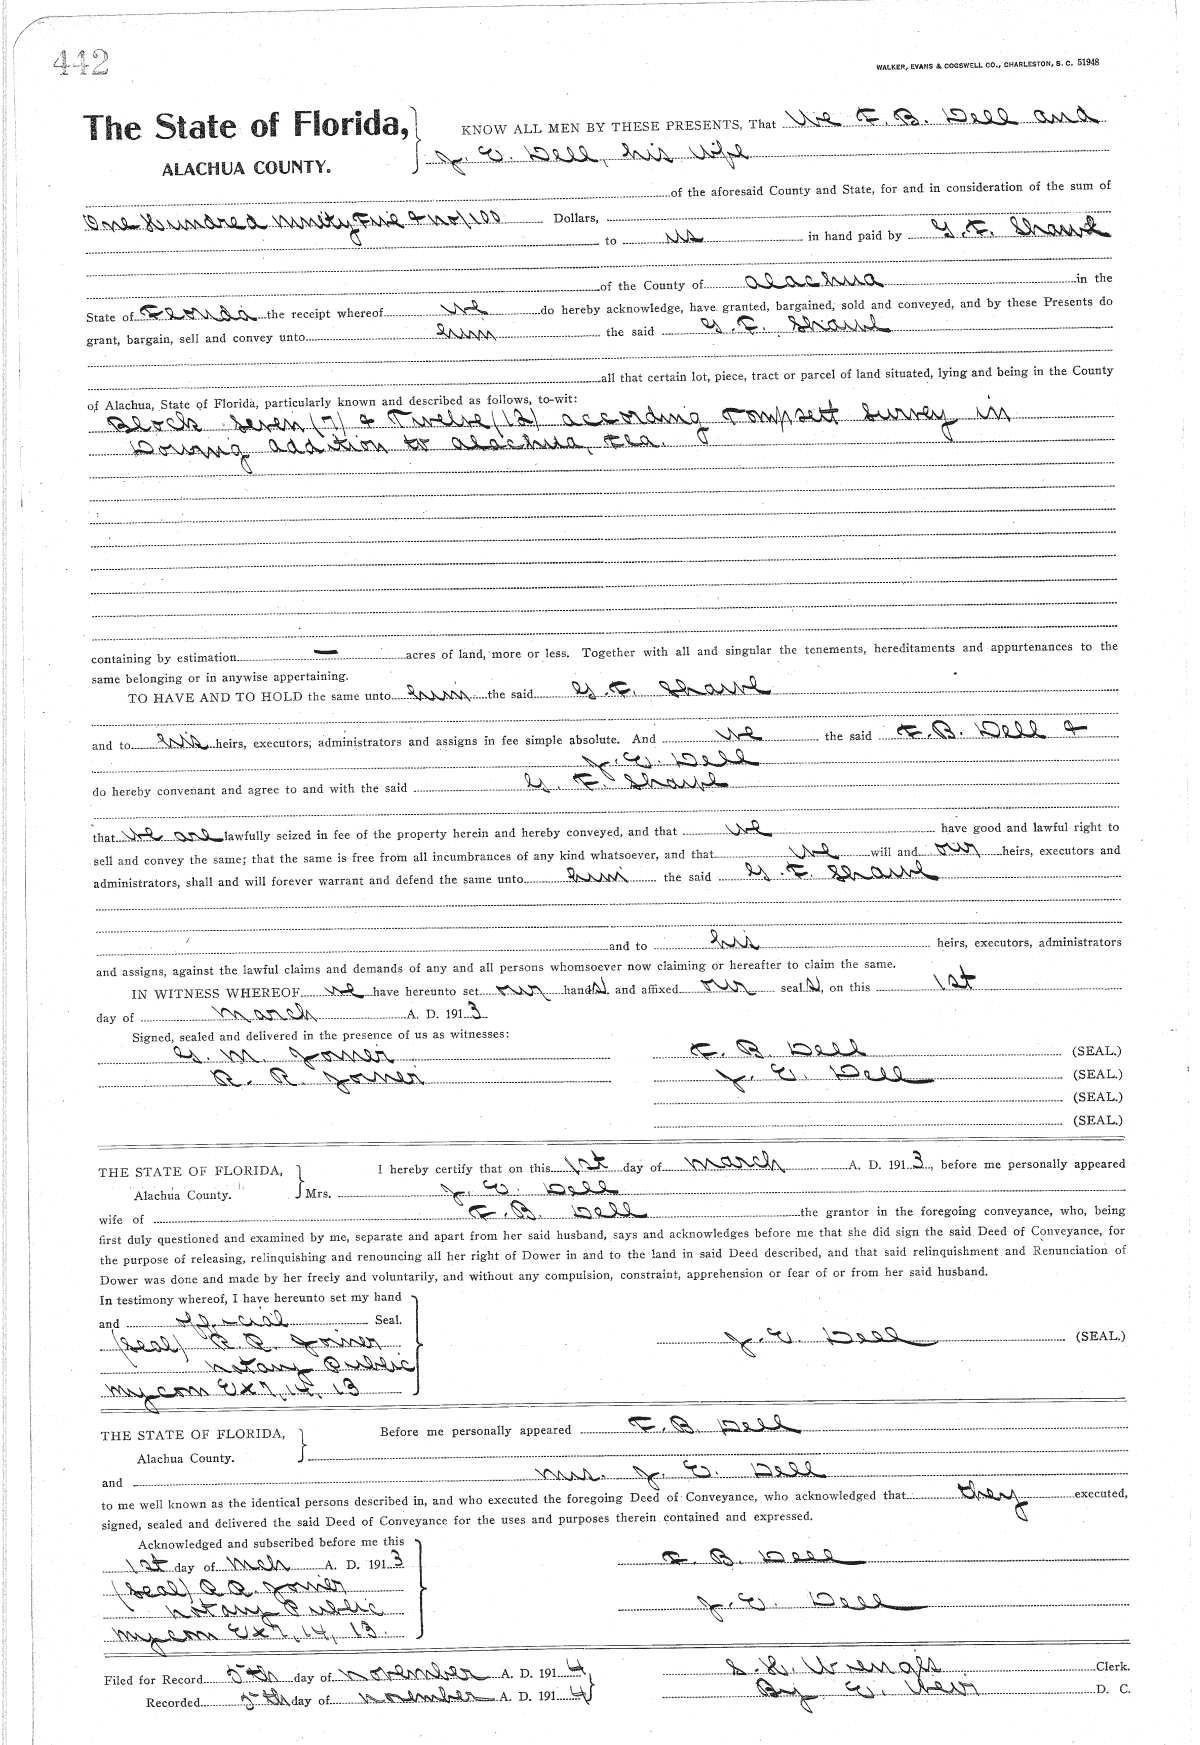 442
WALKER, EVANS & COGSWELL CO., CHARLESTON, S. C. 51948
The State of Florida, KNOW ALL MEN BY THESE PRESENTS, That We F. B. Dell and
ALACHUA COUNTY. J. E. Dell, his wife
of the aforesaid County and State, for and in consideration of the sum of
One Hundred Ninety Five & no/100 Dollars,
to us in hand paid by G. F. Shawl
of the County of Alachua in the
State of Florida the receipt whereof we do hereby acknowledge, have granted, bargained, sold and conveyed, and by these Presents do
grant, bargain, sell and convey unto him the said G. F. Shawl
all that certain lot, piece, tract or parcel of land situated, lying and being in the County
of Alachua, State of Florida, particularly known and described as follows, to-wit:
Block Seven (7) & Twelve (12) according Tompsett Survey in
addition to Alachua, Fla.
containing by estimation — acres of land, more or less. Together with all and singular the tenements, hereditaments and appurtenances to the
same belonging or in anywise appertaining.
TO HAVE AND TO HOLD the same unto him the said G. F. Shawl
and to his heirs, executors, administrators and assigns in fee simple absolute. And we the said F. B. Dell &
J. E. Dell
do hereby convenant and agree to and with the said G. F. Shawl
that we are lawfully seized in fee of the property herein and hereby conveyed, and that we have good and lawful right to
sell and convey the same; that the same is free from all incumbrances of any kind whatsoever, and that we will and our heirs, executors and
administrators, shall and will forever warrant and defend the same unto him the said G. F. Shawl
and to his heirs, executors, administrators
and assigns, against the lawful claims and demands of any and all persons whomsoever now claiming or hereafter to claim the same.
IN WITNESS WHEREOF we have hereunto set our hands and affixed our seals, on this 1st
day of March A. D. 1913
Signed, sealed and delivered in the presence of us as witnesses:
G. M. Joiner F. B. Dell (SEAL.)
R. R. Joiner J. E. Dell (SEAL.)
(SEAL.)
(SEAL.)
THE STATE OF FLORIDA, I hereby certify that on this 1st day of March A. D. 1913, before me personally appeared
Alachua County. Mrs. J. E. Dell
wife of F. B. Dell the grantor in the foregoing conveyance, who, being
first duly questioned and examined by me, separate and apart from her said husband, says and acknowledges before me that she did sign the said Deed of Conveyance, for
the purpose of releasing, relinquishing and renouncing all her right of Dower in and to the land in said Deed described, and that said relinquishment and Renunciation of
Dower was done and made by her freely and voluntarily, and without any compulsion, constraint, apprehension or fear of or from her said husband.
In testimony whereof, I have hereunto set my hand
and official Seal.
(Seal) R. R. Joiner J. E. Dell (SEAL.)
Notary Public
My com Ex 7, 14, 13
THE STATE OF FLORIDA, Before me personally appeared F. B. Dell
Alachua County.
and Mrs. J. E. Dell
to me well known as the identical persons described in, and who executed the foregoing Deed of Conveyance, who acknowledged that they executed,
signed, sealed and delivered the said Deed of Conveyance for the uses and purposes therein contained and expressed.
Acknowledged and subscribed before me this
1st day of Mch A. D. 1913 F. B. Dell
(Seal) R. R. Joiner
Notary Public J. E. Dell
My com Ex 7, 14, 13.
Filed for Record 5th day of November A. D. 1914 S. H. Wienges Clerk.
Recorded 5th day of November A. D. 1914 By E. D. C.